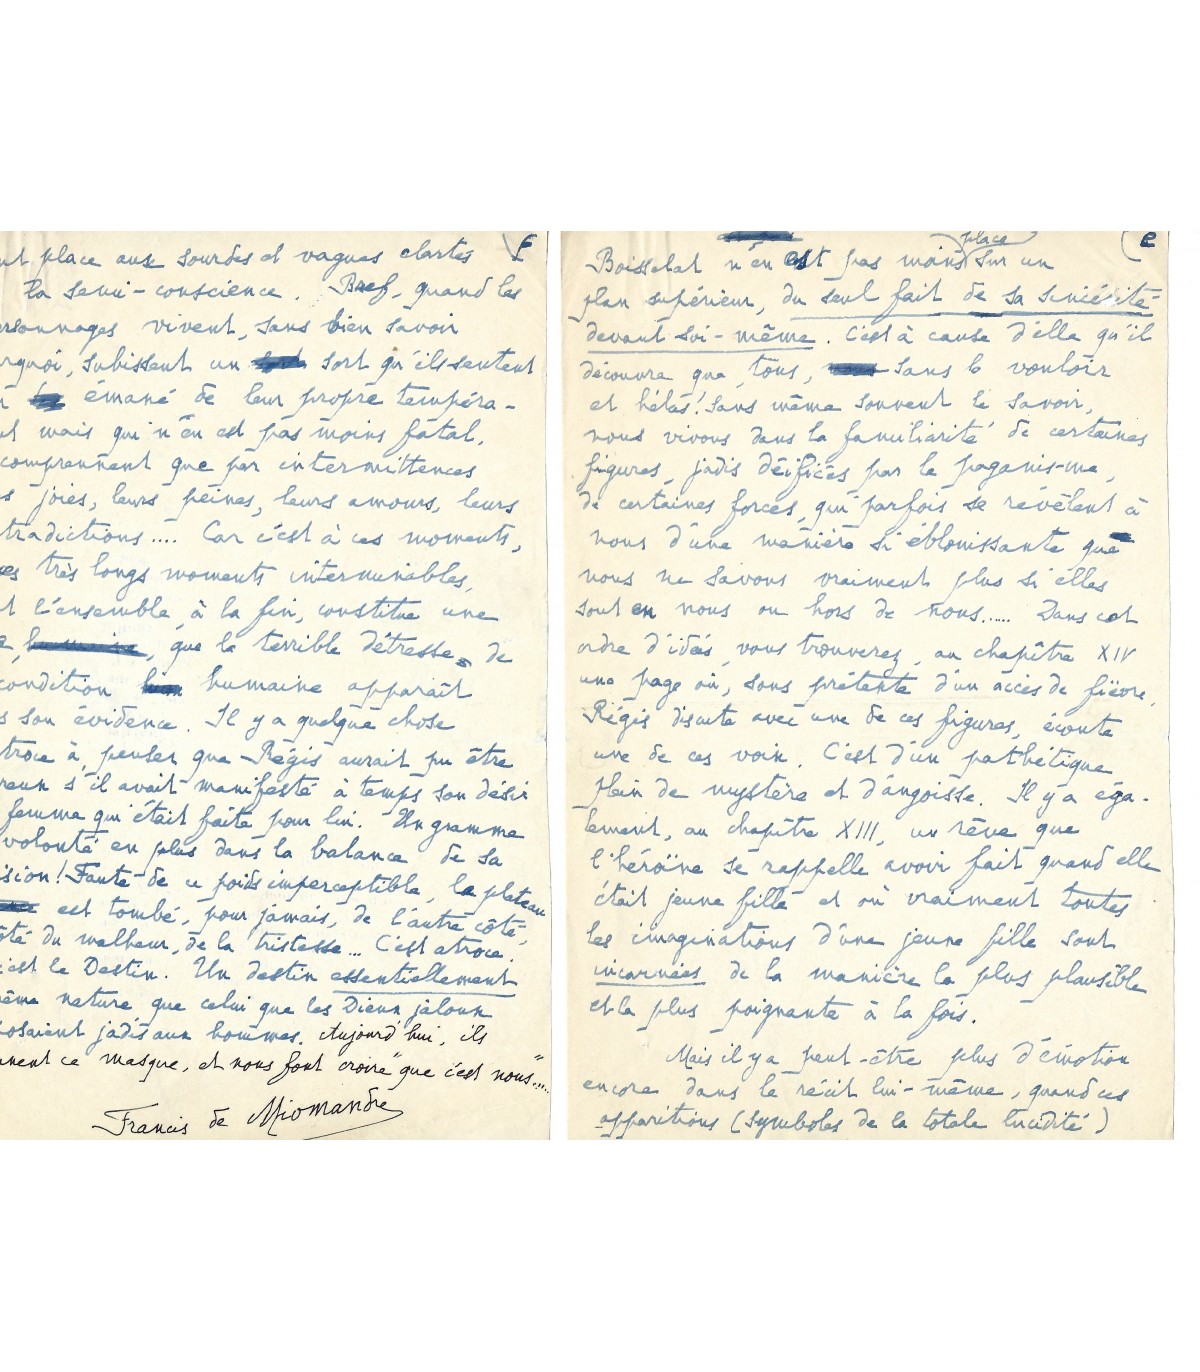 F
nt place aux sourdes et vagues clartés
la semi-conscience. Bref, quand les
rsonnages vivent, sans bien savoir
rquoi, subissent un sort qu'ils sentent
émané de leur propre tempéra-
t mais qui n'en est pas moins fatal,
comprennent que par intermittences
s joies, leurs peines, leurs amours, leurs
tradictions.... Car c'est à ces moments,
es très longs moments interminables,
t l'ensemble, à la fin, constitue une
, que la terrible détresse de
condition humaine apparaît
s son évidence. Il y a quelque chose
troce à penser que Régis aurait pu être
reux s'il avait manifesté à temps son désir
femme qui était faite pour lui. Un gramme
volonté en plus dans la balance de sa
ision! Faute de ce poids imperceptible, le plateau
est tombé, pour jamais, de l'autre côté,
ôté du malheur, de la tristesse... C'est atroce.
c'est le Destin. Un destin essentiellement
ême nature que celui que les Dieux jaloux
osaient jadis aux hommes. Aujourd'hui, ils
nnent ce masque, et nous font croire "que c'est nous"....
Francis de Miomandre
E
place
Boisselat n'en est pas moins sur un
plan supérieur, du seul fait de sa sincérité
devant soi-même. C'est à cause d'elle qu'il
découvre que, tous, sans le vouloir
et hélas! sans même souvent le savoir,
nous vivons dans la familiarité de certaines
figures, jadis déifiées par le paganis-me,
de certaines forces, qui parfois se révèlent à
nous d'une manière si éblouissante que
nous ne savons vraiment plus si elles
sont en nous ou hors de nous..... Dans cet
ordre d'idées, vous trouverez, au chapître XIV
une page où, sous prétexte d'un accès de fièvre,
Régis discute avec une de ces figures, écoute
une de ces voix. C'est d'un pathétique
plein de mystère et d'angoisse. Il y a éga-
lement, au chapître XIII, un rêve que
l'héroïne se rappelle avoir fait quand elle
était jeune fille et où vraiment toutes
les imaginations d'une jeune fille sont
incarnées de la manière la plus plausible
et la plus poignante à la fois.
Mais il y a peut-être plus d'émotion
encore dans le récit lui-même, quand ces
apparitions (symboles de la totale lucidité)